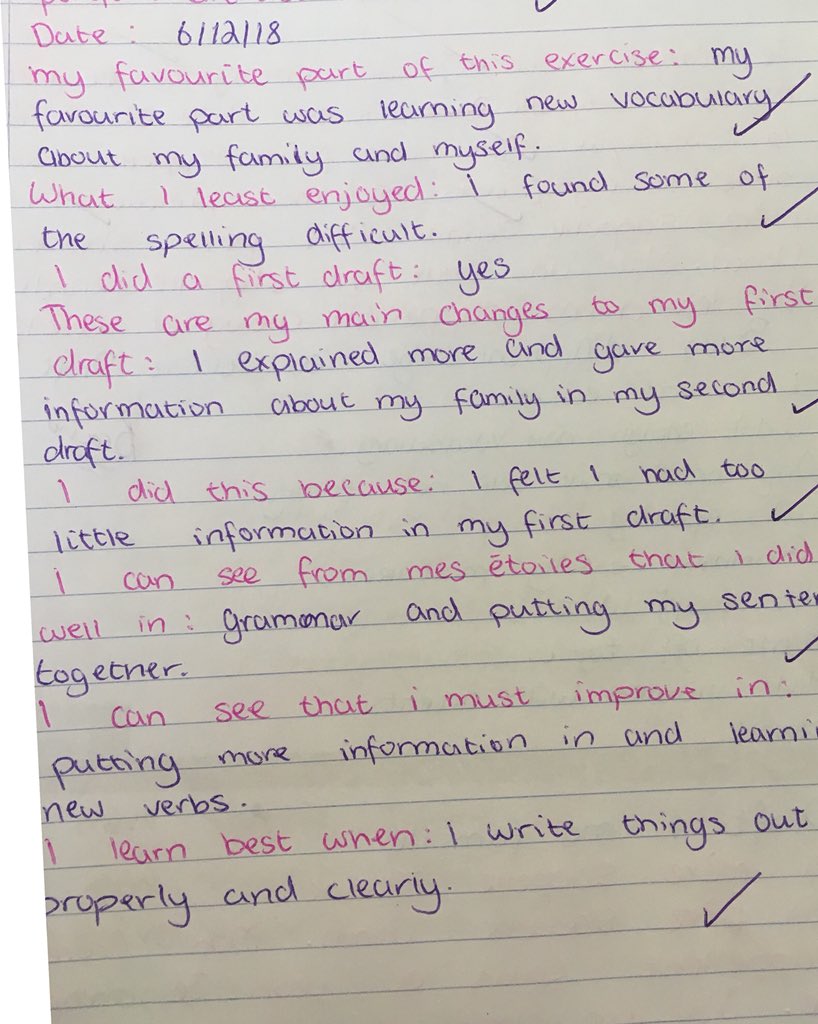 Date : 6/12/18
my favourite part of this exercise: my
favourite part was learning new vocabulary
about my family and myself.
What I least enjoyed: i found some of
the spelling difficult.
I did a first draft: yes
These are my main changes to my first
draft: I explained more and gave more
information about my family in my second
draft.
I did this because: I felt I had too
little information in my first draft.
I can see from mes étoiles that i did
well in: grammar and putting my senten
together.
I can see that i must improve in:
putting more information in and learni
new verbs.
I learn best when: i write things out
properly and clearly.